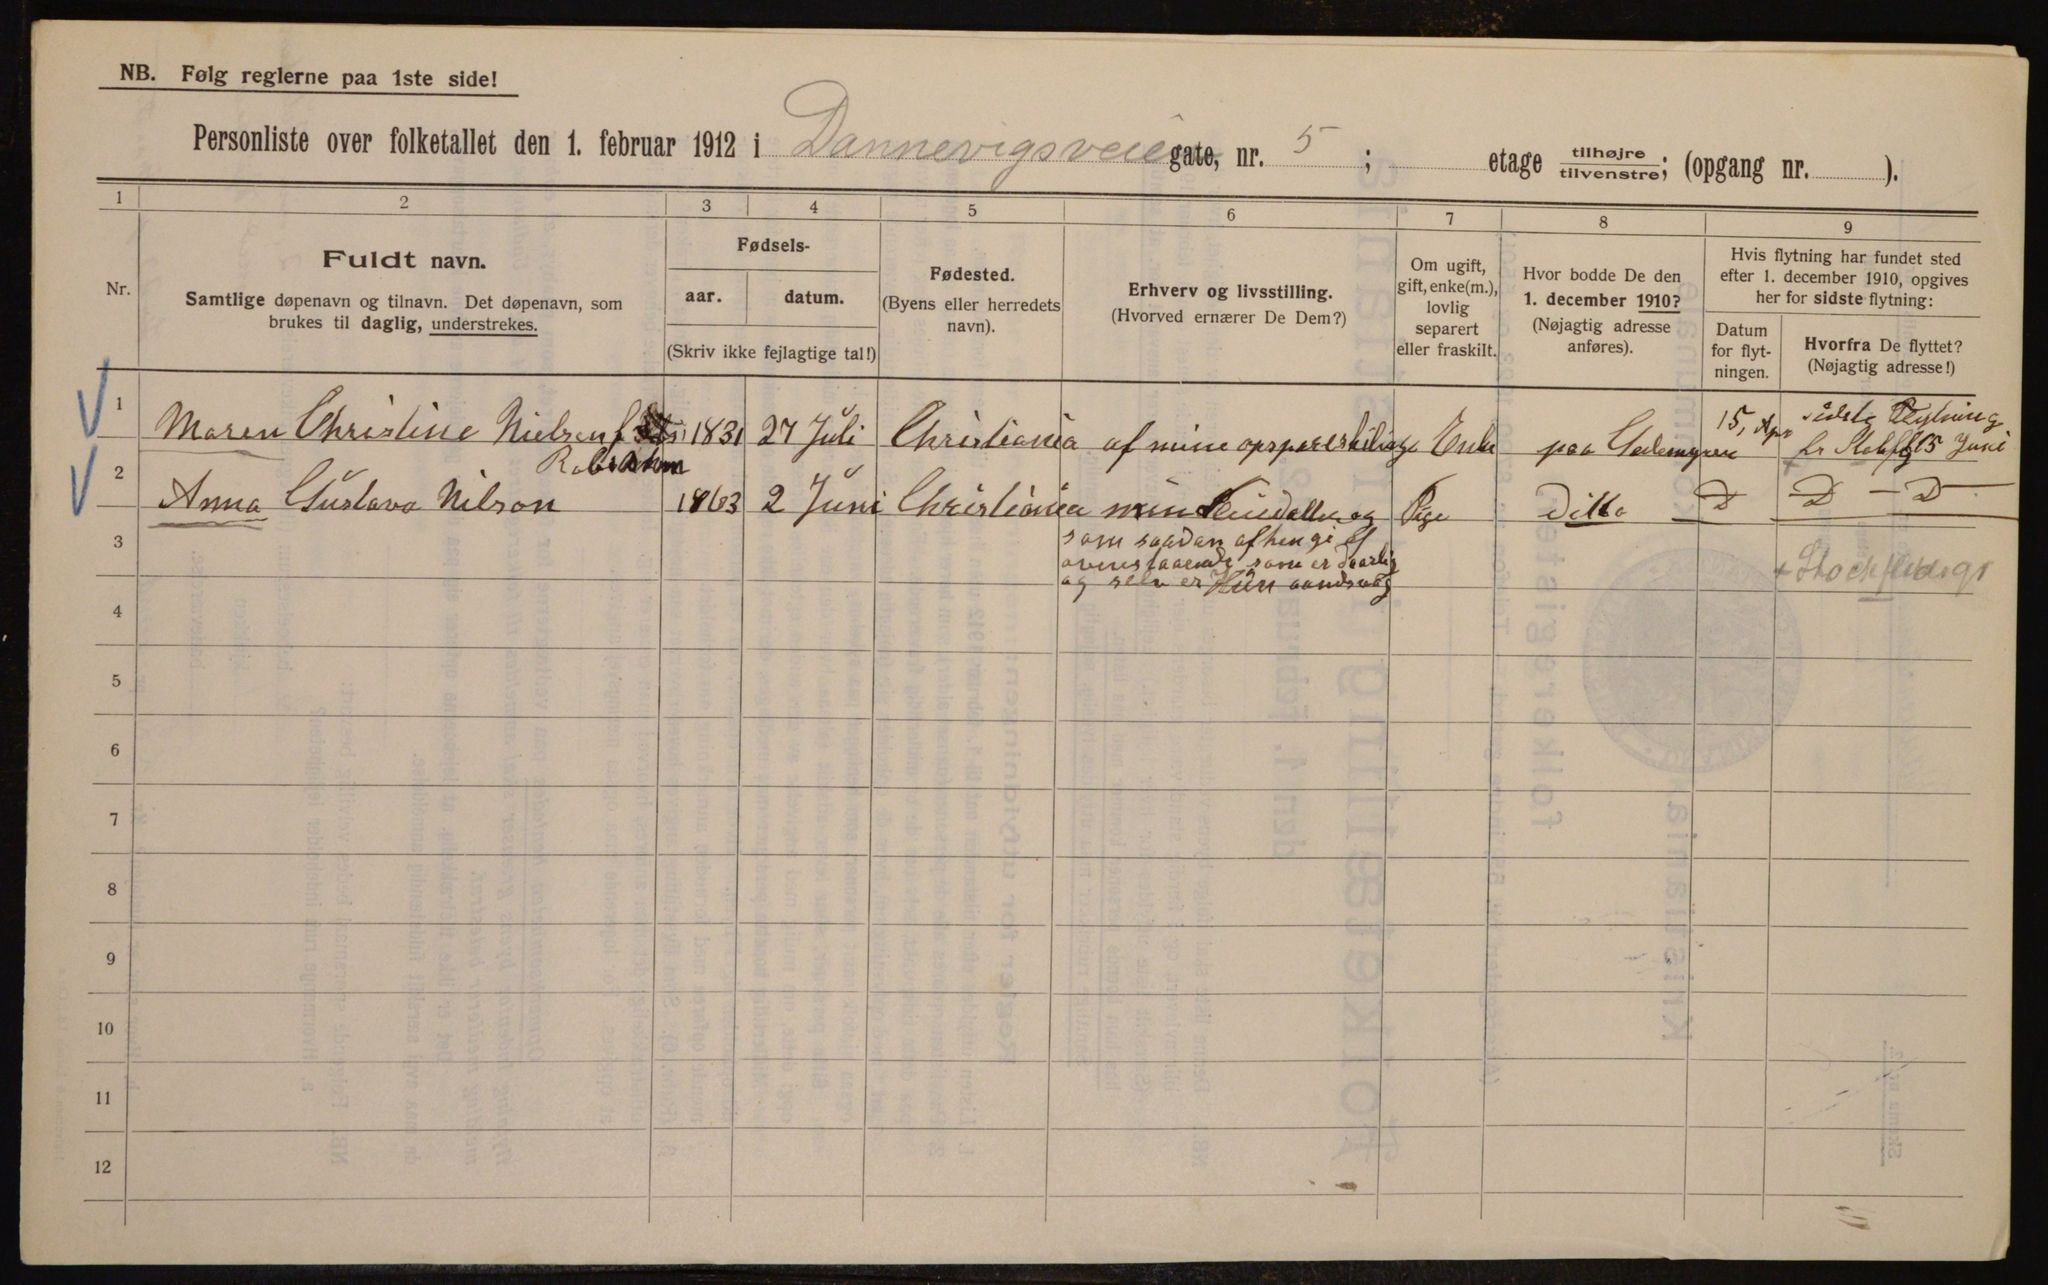 NB. Følg reglerne paa 1ste side!
Personliste over folketallet den 1. februar 1912 i Dannevigsveie gate, nr. 5 ; etage tilhøjre tilvenstre; (opgang nr. ).
1 2 3 4 5 6 7 8 9
Nr.
Fuldt navn.
Samtlige døpenavn og tilnavn. Det døpenavn, som
brukes til daglig, understrekes.
Fødsels-
aar. datum.
(Skriv ikke fejlagtige tal!)
Fødested.
(Byens eller herredets
navn).
Erhverv og livsstilling.
(Hvorved ernærer De Dem?)
Om ugift,
gift, enke(m.),
lovlig
separert
eller fraskilt.
Hvor bodde De den
1. december 1910?
(Nøjagtig adresse
anføres).
Hvis flytning har fundet sted
efter 1. december 1910, opgives
her for sidste flytning:
Datum
for flyt-
ningen.
Hvorfra De flyttet?
(Nøjagtig adresse!)
1 Maren Christine Nielsen 1831 27 Juli Christiania af mine Enke paa 15, Apr sidste
15 Juni
2 Anna Gustava Nilson 1863 2 Juni Christiania min og Pige Ditto D D - D
som saadan af
som er daarlig
og selv er Hun aandsvag
3
4
5
6
7
8
9
10
11
12